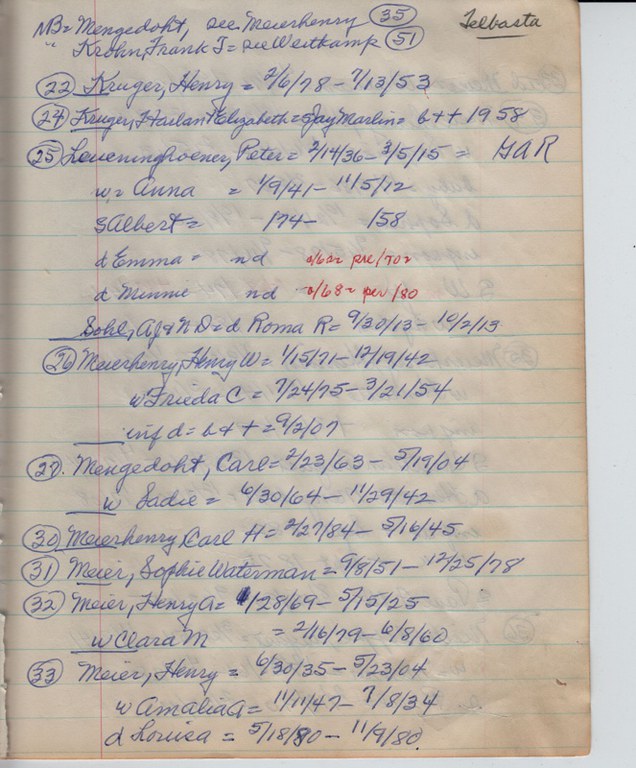 NB= Mengedoht, see Meierhenry (35) Telbasta
" Krohn, Frank J= see Westkamp (51)
(22) Kruger, Henry = 2/6/78 - 7/13/53
(24) Kruger, Harlan + Elizabeth = Jay Marlin = b + + 1958
(25) Loueninghoener, Peter = 2/14/36 - 3/5/15 = GAR
w = Anna = 1/9/41 - 11/5/12
s Albert = 174- 158
d Emma = nd a/62= pre/70=
d Minnie nd a/68= per/80
Sohl, A J + N D = d Roma R = 9/30/13 - 10/2/13
(26) Meierhenry, Henry W = 1/15/71 - 12/19/42
w Frieda C = 7/24/75 - 3/21/54
inf d = b + + = 9/2/07
(27) Mengedoht, Carl = 2/23/63 - 5/19/04
w Sadie = 6/30/64 - 11/29/42
(30) Meierhenry, Carl H = 2/27/84 - 5/16/45
(31) Meier, Sophie Waterman = 9/8/51 - 12/25/78
(32) Meier, Henry A = 1/28/69 - 5/15/25
w Clara M = 2/16/79 - 6/8/60
(33) Meier, Henry = 6/30/35 - 5/23/04
w Amalia A = 11/11/47 - 7/8/34
d Louisa = 5/18/80 - 11/9/80.